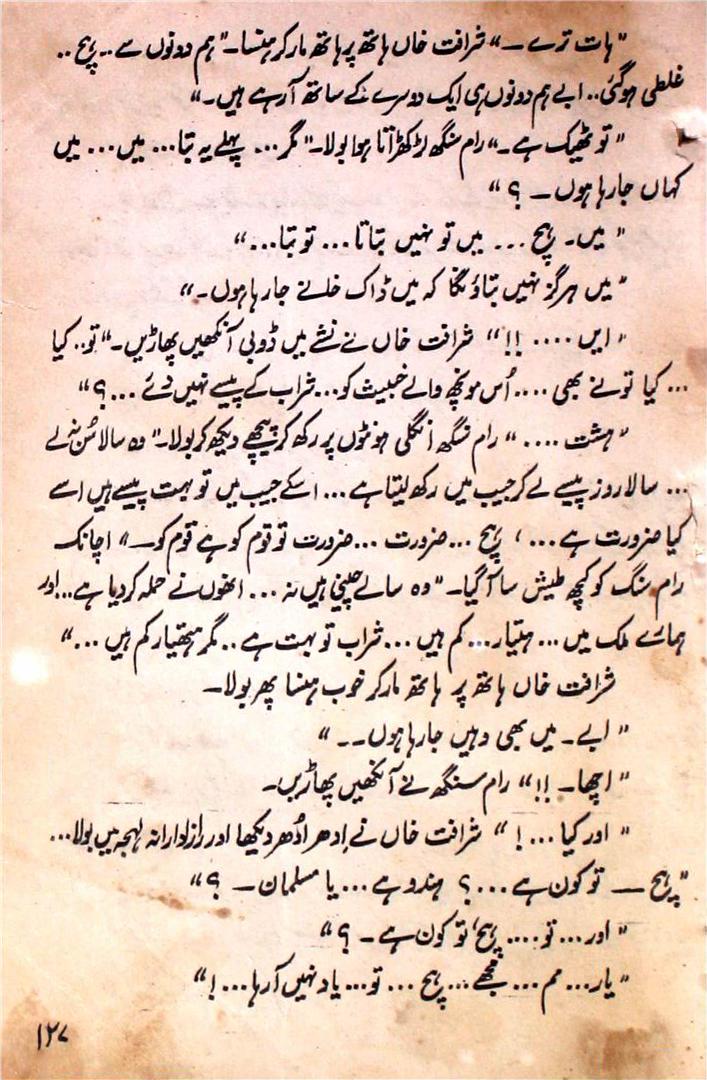 "ہات ترے ـ" شرافت خاں ہاتھ پر ہاتھ مار کر ہنسا۔ "ہم دونوں سے .. پہچ ..
غلطی ہو گئی .. ابے ہم دونوں ہی ایک دوسرے کے ساتھ آ رہے ہیں۔"
"تو ٹھیک ہے۔" رام سنگھ لڑکھڑاتا ہوا بولا۔ "مگر ... پہلے یہ بتا ... میں ... میں
کہاں جا رہا ہوں ـ ؟"
"میں۔ پہچ ... میں تو نہیں بتاتا ... تو بتا ..."
"میں ہرگز نہیں بتاؤنگا کہ میں ڈاک خانے جا رہا ہوں۔"
"ایں .... !!" شرافت خاں نے نشے میں ڈوبی آنکھیں پھاڑیں۔ "تو .. کیا
... کیا تو نے بھی .... اُس مونچھ والے خبیث کو ... شراب کے پیسے نہیں دئے ... ؟"
"ہشت ...." رام سنگھ انگلی ہونٹوں پر رکھ کر پیچھے دیکھ کر بولا۔ "وہ سالا سُن نہ لے
... سالا روز پیسے لے کر جیب میں رکھ لیتا ہے ... اسکے جیب میں تو بہت پیسے ہیں اسے
کیا ضرورت ہے ... ، پہچ ... ضرورت ... ضرورت تو قوم کو ہے قوم کو ـ" اچانک
رام سنگ کو کچھ طیش سا آ گیا۔ "وہ سالے چینی ہیں نہ ... انھوں نے حملہ کر دیا ہے ... اور
ہمارے ملک میں ... ہتیار ... کم ہیں ... شراب تو بہت ہے .. مگر ہتھیار کم ہیں ..."
شرافت خاں ہاتھ پر ہاتھ مار کر خوب ہنسا پھر بولا۔
"ابے ۔ میں بھی وہیں جا رہا ہوں ۔۔"
"اچھا۔ !!" رام سنگھ نے آنکھیں پھاڑیں۔
"اور کیا ... !" شرافت خاں نے اِدھر اُدھر دیکھا اور رازدارانہ لہجہ میں بولا ...
"پہچ ـ تو کون ہے ... ؟ ہندو ہے ... یا مسلمان ـ ؟"
"اور ... تو .... پہچ، تو کون ہے ـ ؟"
"یار ... مم ... مجھے ... پہچ ... تو ... یاد نہیں آ رہا ... !"
۱۲۷